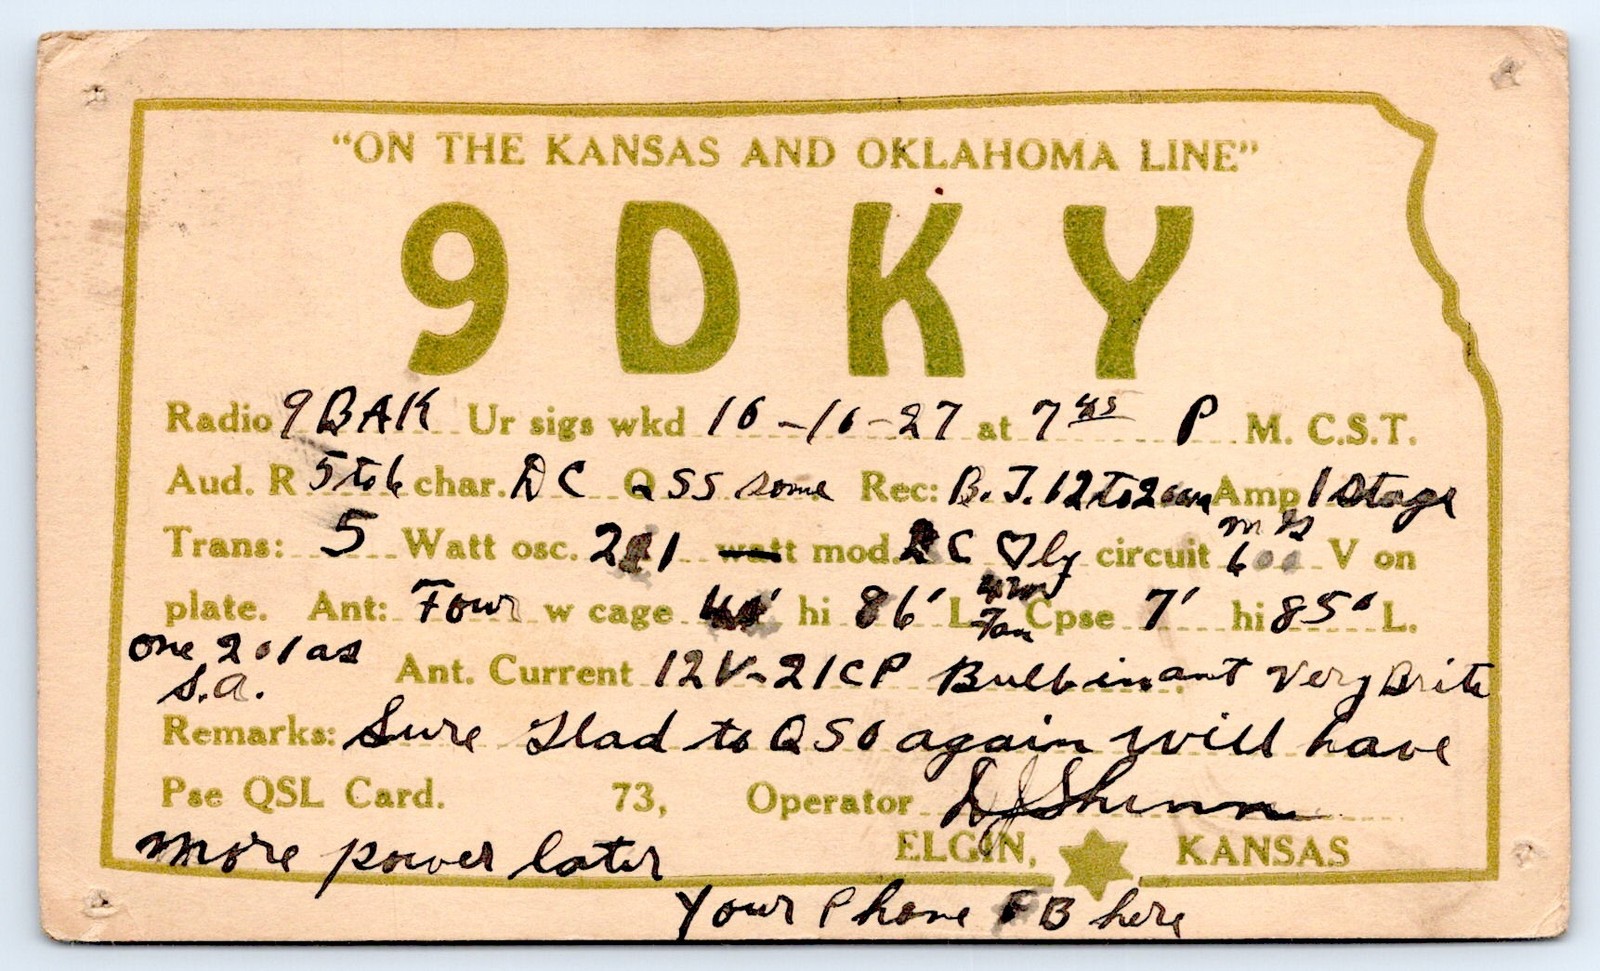 "ON THE KANSAS AND OKLAHOMA LINE"
9DKY
Radio 9BAK Ur sigs wkd 10-16-27 at 7 45 P M. C.S.T.
Aud. R 5 to 6 char. DC QSS some Rec: B.T. 12 to 200m Amp 1 Stage
Trans: 5 Watt osc. 201 watt mod. DC ♡ly circuit MG 600 V on
plate. Ant: Four w cage hi 86' L. 4 wr Fan Cpse 7' hi 85' L.
one 201 as
S.A. Ant. Current 12V-21CP Bulb in ant Very Brite
Remarks: Sure Glad to QSO again will have
Pse QSL Card. 73, Operator D J Shinn
more power later ELGIN, KANSAS
Your Phone FB here